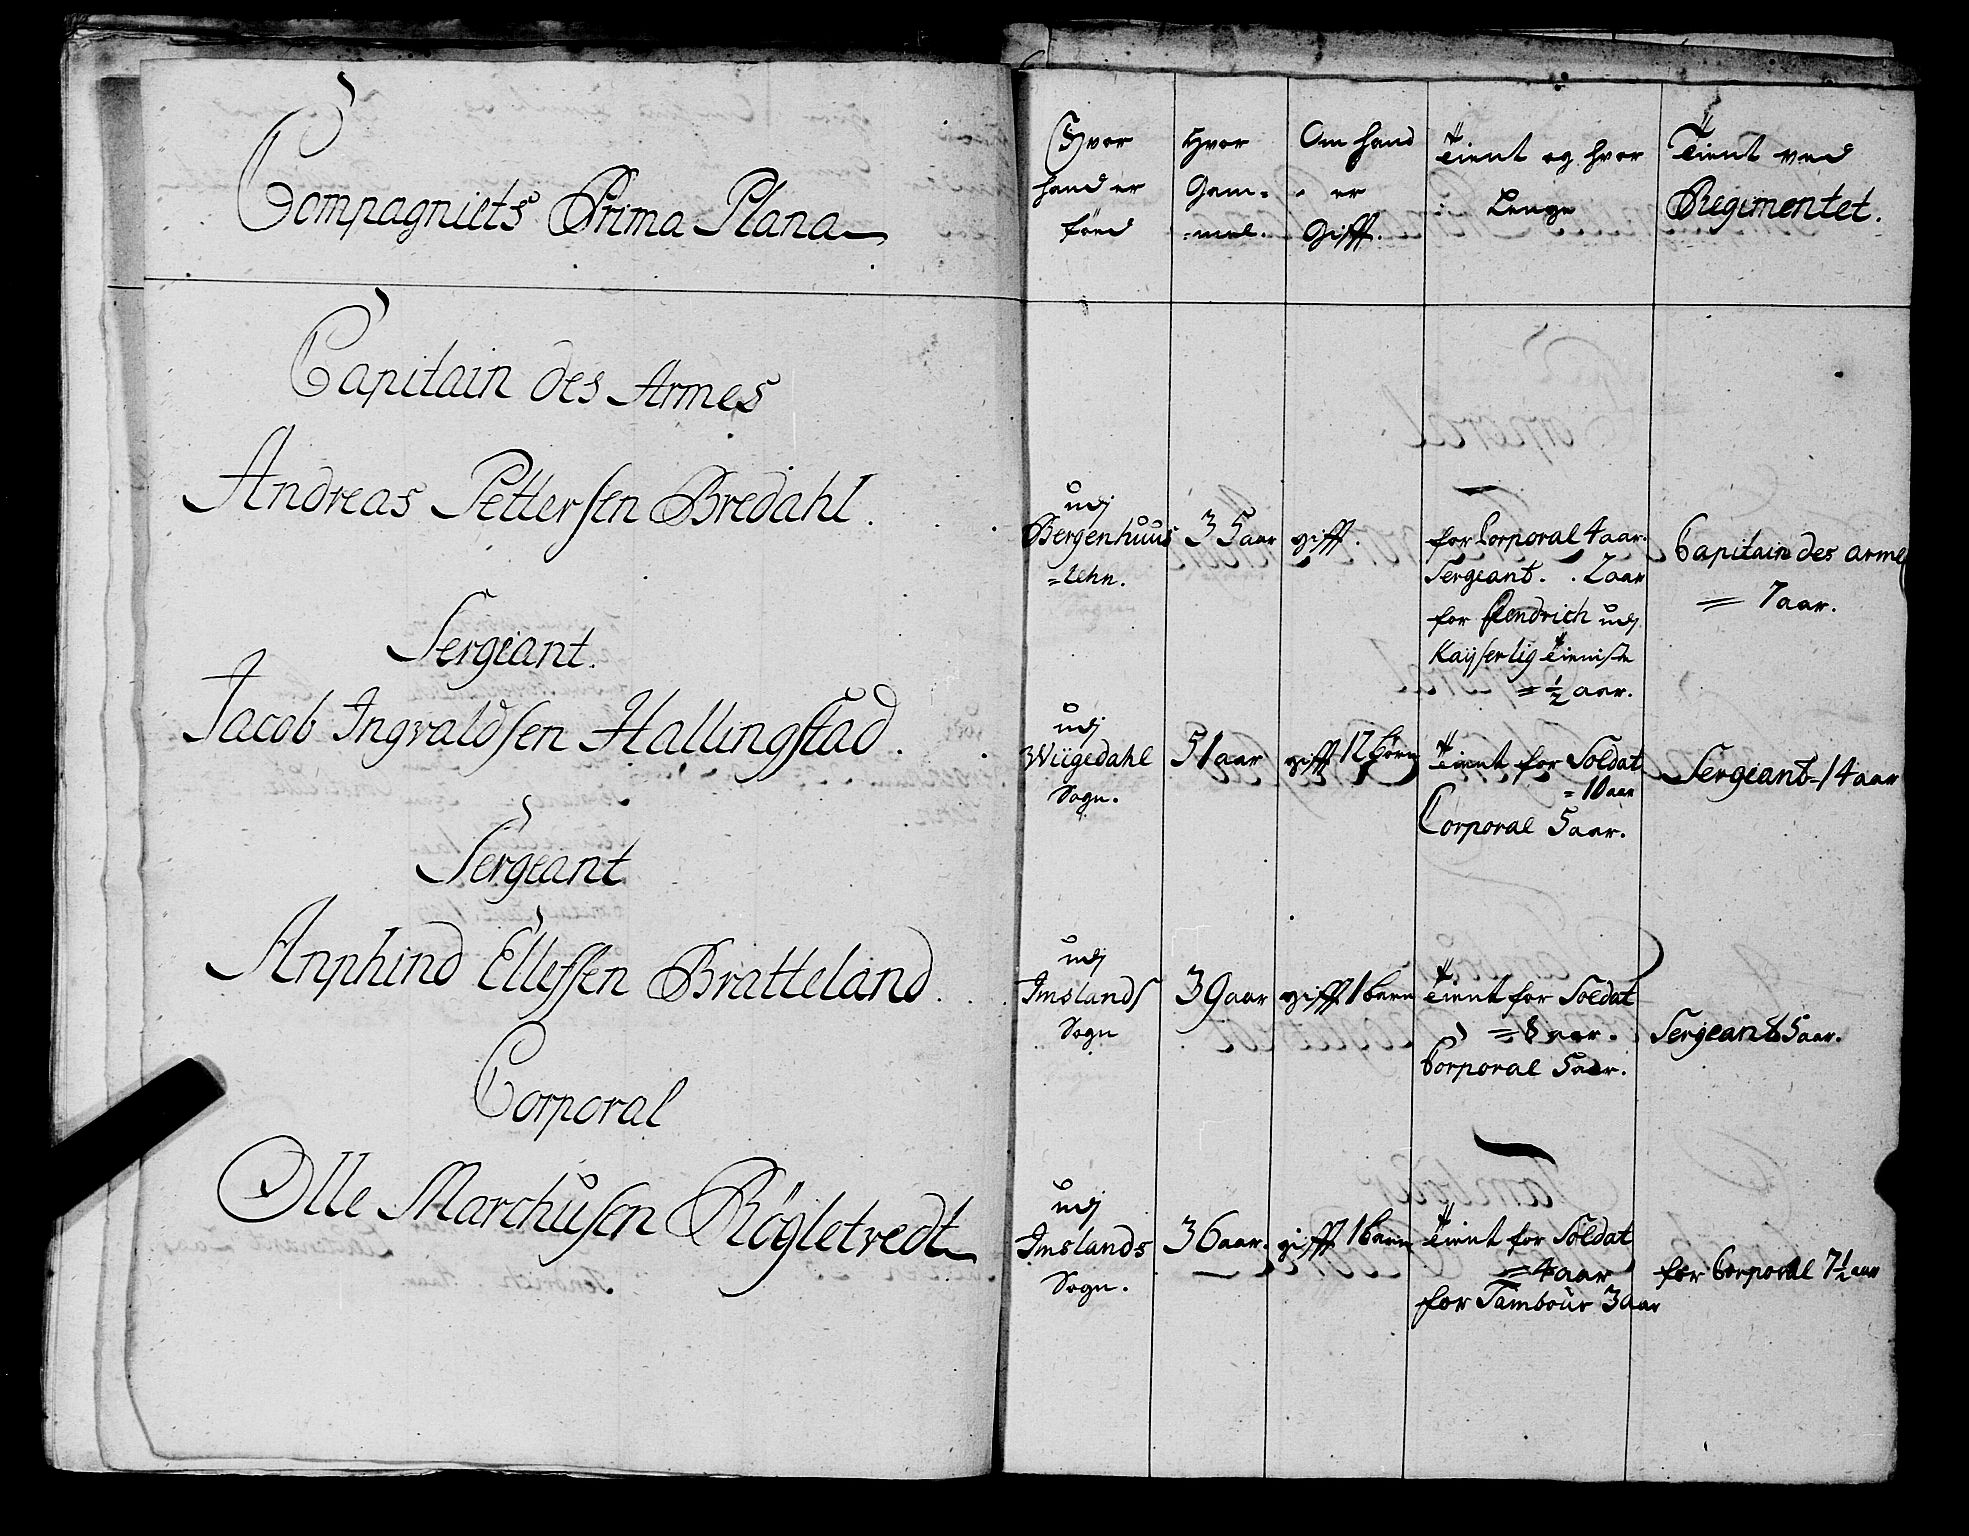 Compagniets Prima Plana
Capitain des Armes
Andreas Pettersen Bredahl.
Sergiant.
Jacob Ingvaldsen Hallingstad.
Sergeant
Anphind Ellefsen Bratteland.
Corporal
Olle Marchusen Rögletvedt
Hvor
hand er
föed
Hvor
Gam=
=mel.
Om hand
er
Gifft.
Tient og hvor
Lenge
Tient ved
Regimentet.
udj
Bergenhuus
=Lehn.
35 aar
gifft.
for Corporal 4 aar.
Sergeant. . 2 aar
for Fendrich udj
Kayserlig Tieniste
= ½ aar.
Capitain des arme
= 7 aar.
udj
Wiigedahl
Sogn.
51 aar
gifft 12 börn
Tient for Soldat
=10 aar
Corporal 5 aar.
Sergeant = 14 aar
udj
Imslands
Sogn
39 aar
gifft 1 barn
Tient for Soldat
= 8 aar.
Corporal 5 aar.
Sergeant 5 aar.
udj
Imslands
Sogn.
36 aar.
gifft 1 barn
Tient for Soldat
= 4 aar
for Tambour 3 aar
for Corporal 7½ aar